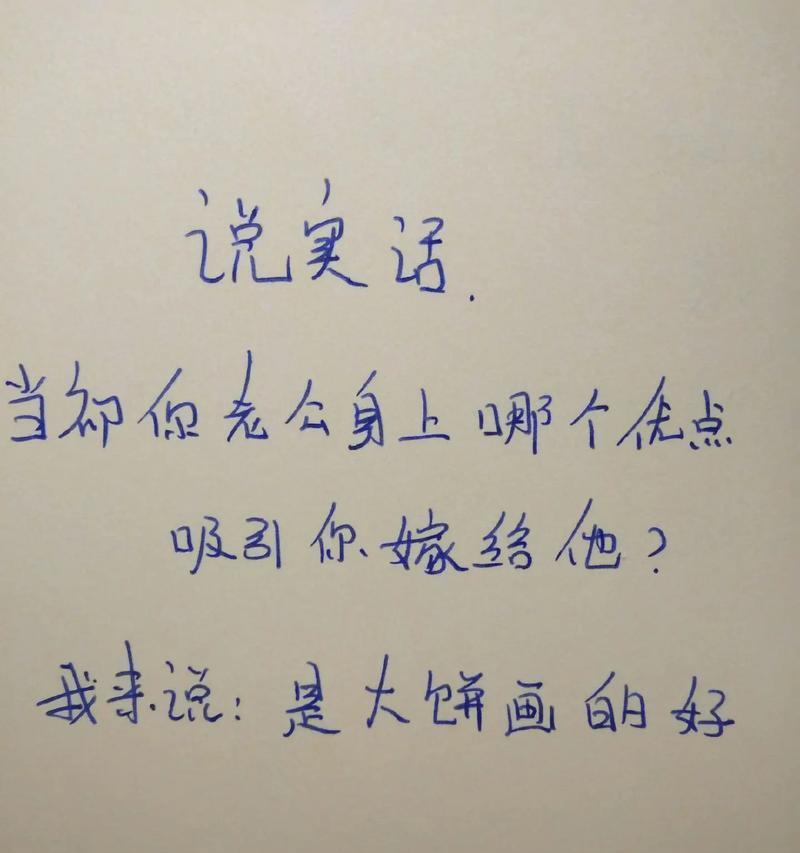 说实话.
当初你老公身上哪个优点
吸引你嫁给他?
我来说:是大饼画的好